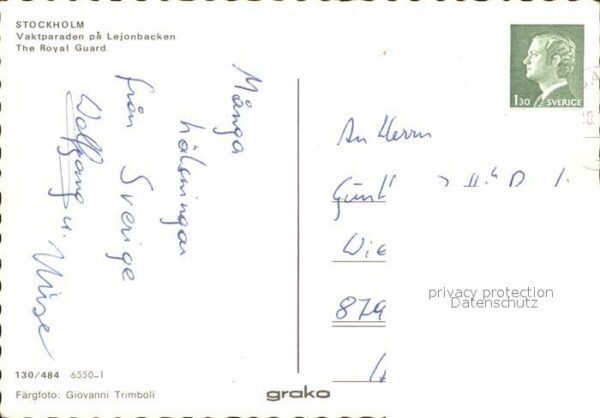 STOCKHOLM
Vaktparaden på Lejonbacken
The Royal Guard
Många
hälsningar
från Sverige
Wolfgang u.
130 SVERIGE
An Herrn
Wie
879
privacy protection
Datenschutz
130/484 6550-1
Färgfoto: Giovanni Trimboli
grako